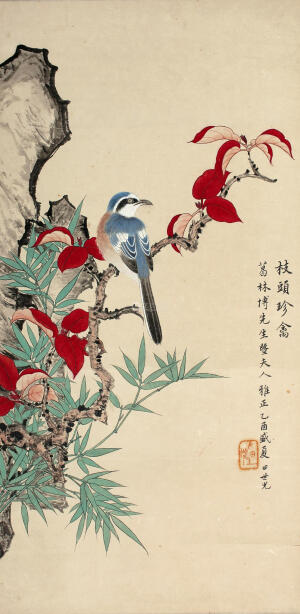 枝頭珍禽
葛林博先生暨夫人雅正乙酉盛夏田世光